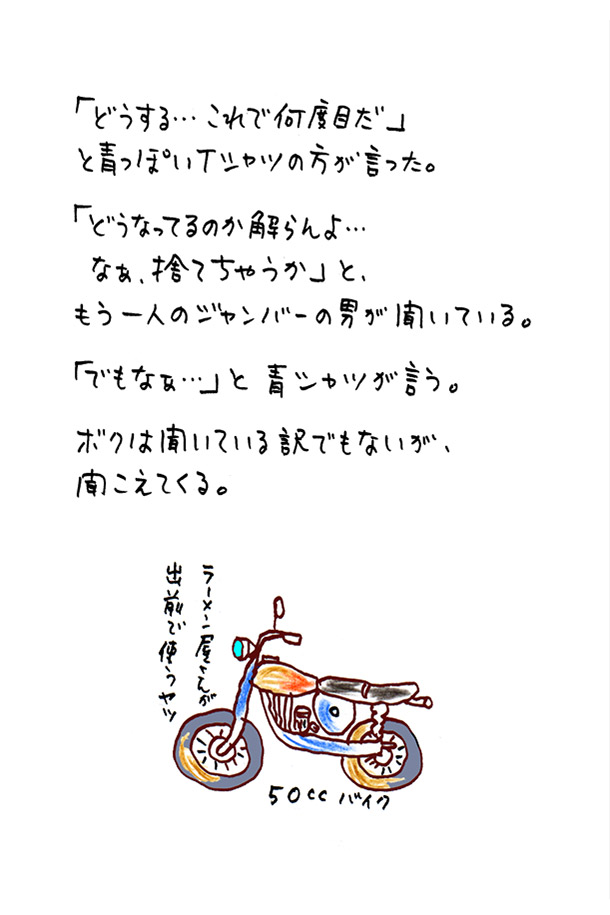 「どうする…これで何度目だ」
と青っぽいTシャツの方が言った。
「どうなってるのか解らんよ…
なぁ、捨てちゃうか」と、
もう一人のジャンバーの男が聞いている。
「でもなぁ…」と青シャツが言う。
ボクは聞いている訳でもないが、
聞こえてくる。
ラーメン屋さんが
出前で使うヤツ
50ccバイク